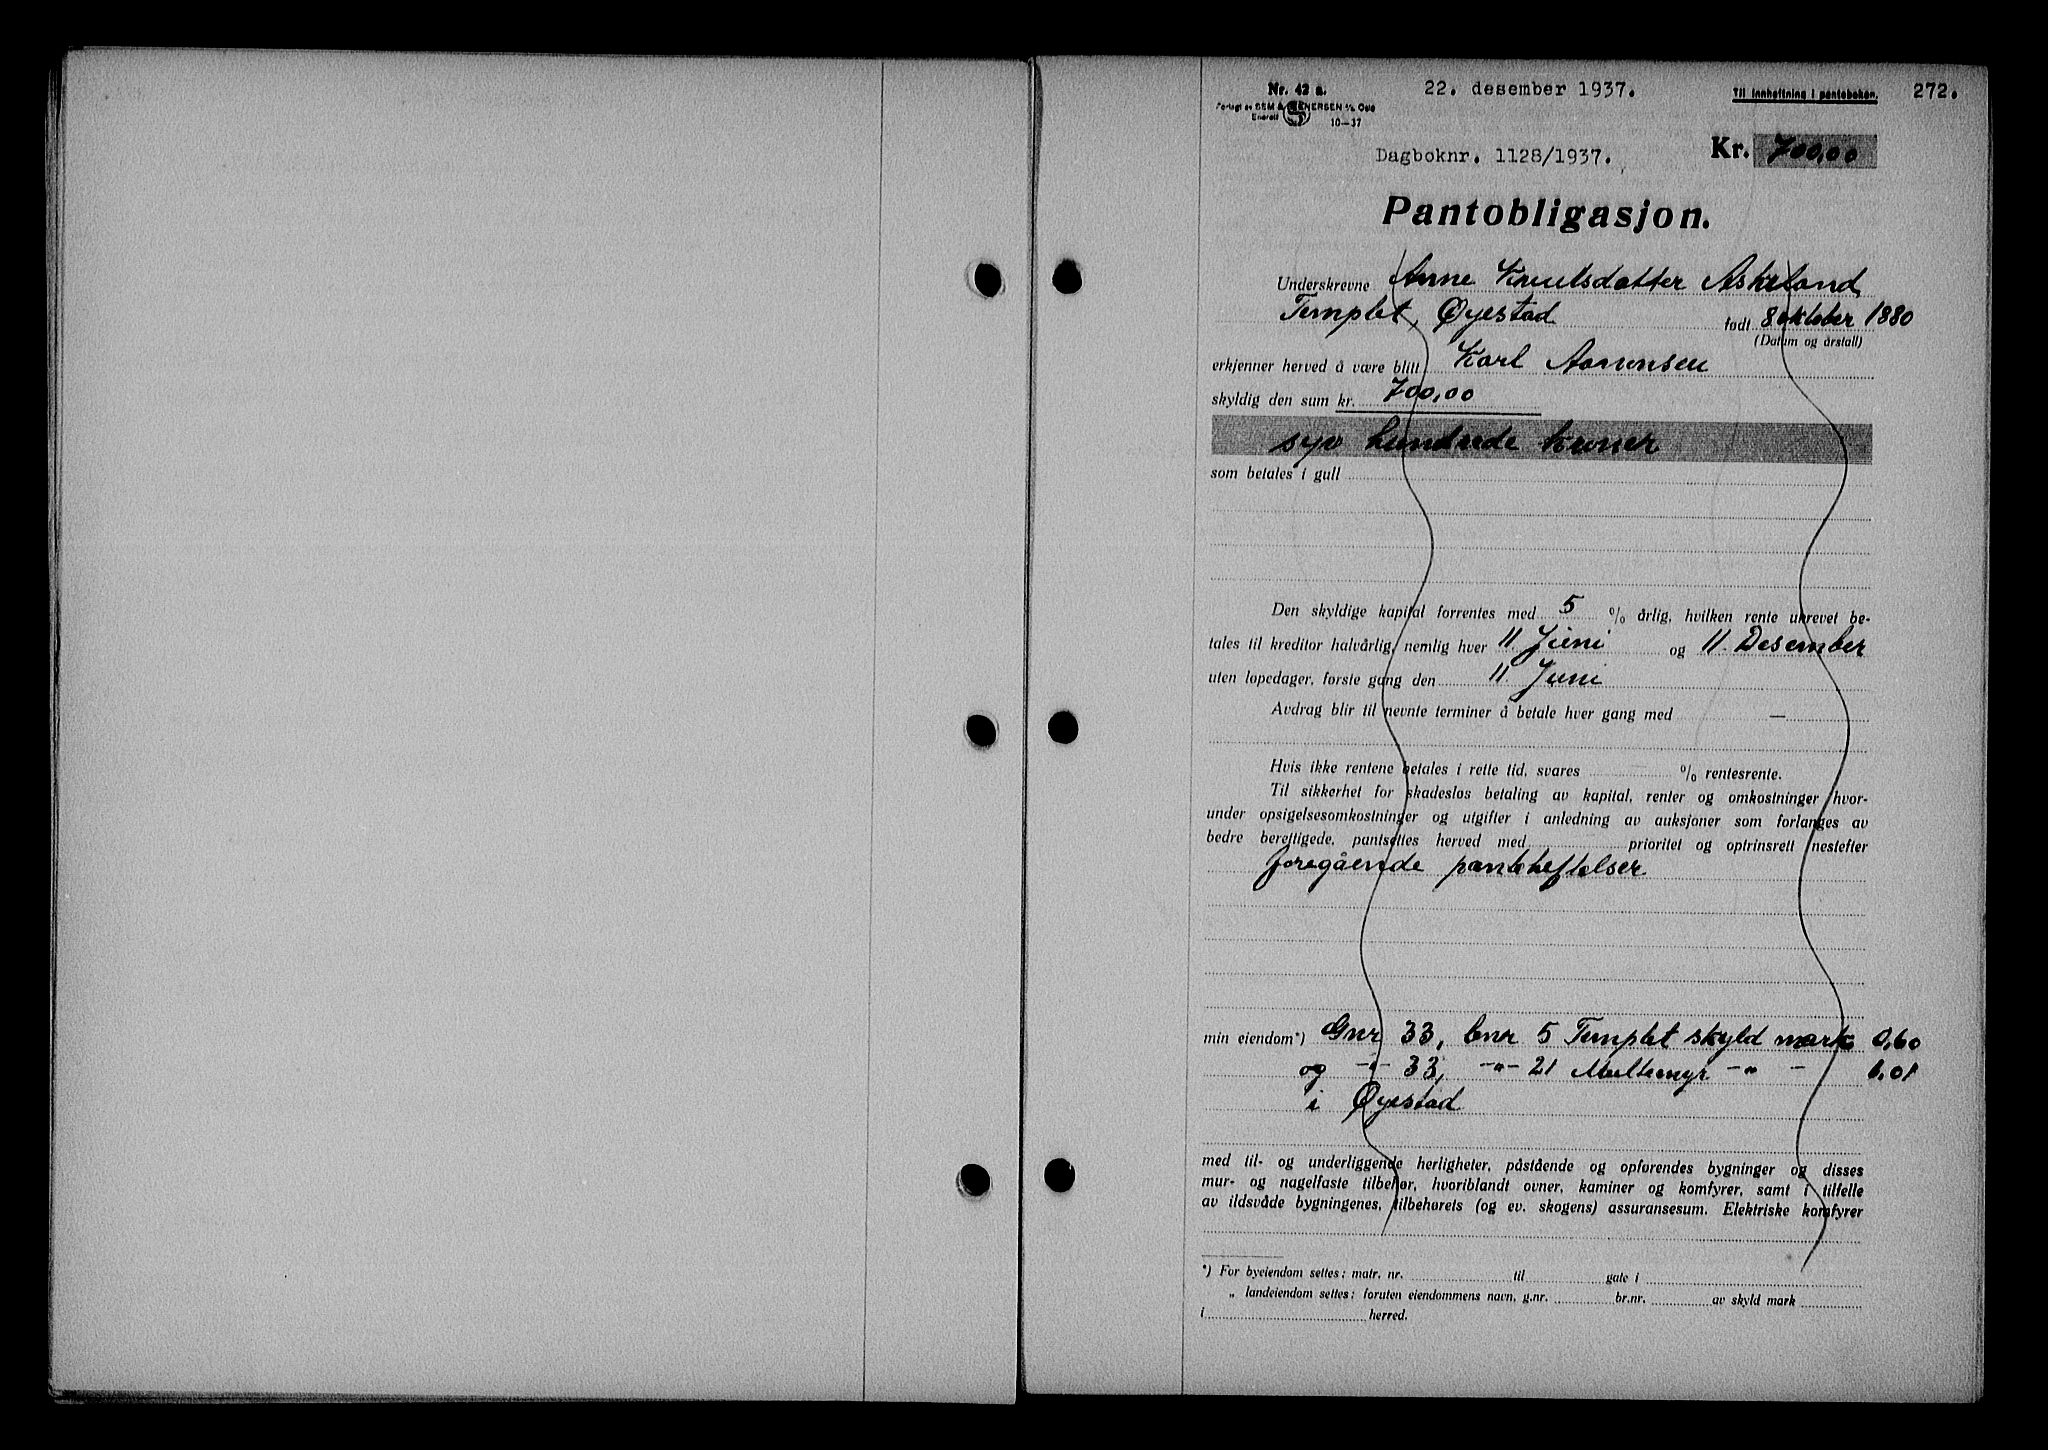 Nr. 42 a. 22. desember 1937. Til innheftning i panteboken. 272.
Forlagt av SEM & STENERSEN A/S Oslo
Enerett 10—37
Dagboknr. 1128/1937. Kr. 700,00
Pantobligasjon.
Underskrevne Anne Knutsdatter Askeland,
Templet, Øyestad født 8 oktober 1880
(Datum og årstall)
erkjenner herved å være blitt Karl Aanonsen
skyldig den sum kr. 700,00
syv hundrede kroner
som betales i gull
Den skyldige kapital forrentes med 5 % årlig, hvilken rente ukrevet be-
tales til kreditor halvårlig, nemlig hver 11 Juni og 11. Desember
uten løpedager, første gang den 11 Juni
Avdrag blir til nevnte terminer å betale hver gang med —
Hvis ikke rentene betales i rette tid, svares % rentesrente.
Til sikkerhet for skadesløs betaling av kapital, renter og omkostninger hvor-
under opsigelsesomkostninger og utgifter i anledning av auksjoner som forlanges av
bedre berettigede, pantsettes herved med prioritet og optrinsrett nestefter
foregående panteheftelser
min eiendom*) Gnr 33, bnr 5 Templet skyld mark 0,60
og -"- 33, -"- 21 Multemyr -"- - 0,01
i Øyestad
med til- og underliggende herligheter, påstående og opførendes bygninger og disses
mur- og nagelfaste tilbehør, hvoriblandt ovner, kaminer og komfyrer, samt i tilfelle
av ildsvåde bygningenes, tilbehørets (og ev. skogens) assuransesum. Elektriske komfyrer
*) For byeiendom settes: matr. nr. til gate i
„ landeiendom settes: foruten eiendommens navn, g.nr. br.nr. av skyld mark
i herred.